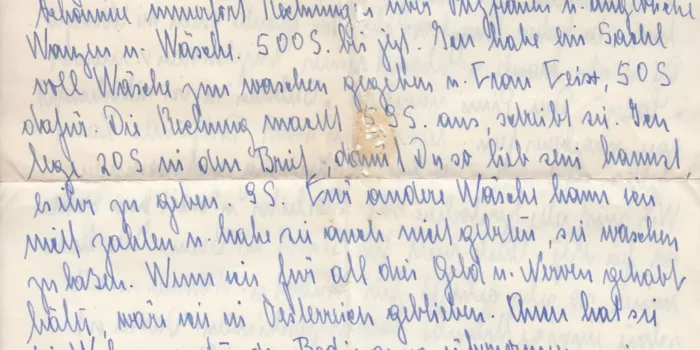 immerfort Rechnungen über
Wanzen u. Wäsche. 500S. bis jzt. Ich habe ein Sackl
voll Wäsche zum waschen gegeben u. Frau Feist, 50S
dafür. Die Rechnung macht 59S. aus, schreibt sie. Ich
lege 20S in den Brief, damit Du so lieb sein kannst,
es ihr zu geben. 9S. Für andere Wäsche kann ich
nicht zahlen u. habe sie auch nicht gebeten, sie waschen
zu lassen. Wenn ich für all dies Geld u. Nerven gehabt
hätte, wäre ich in Österreich geblieben. Dann hat sie